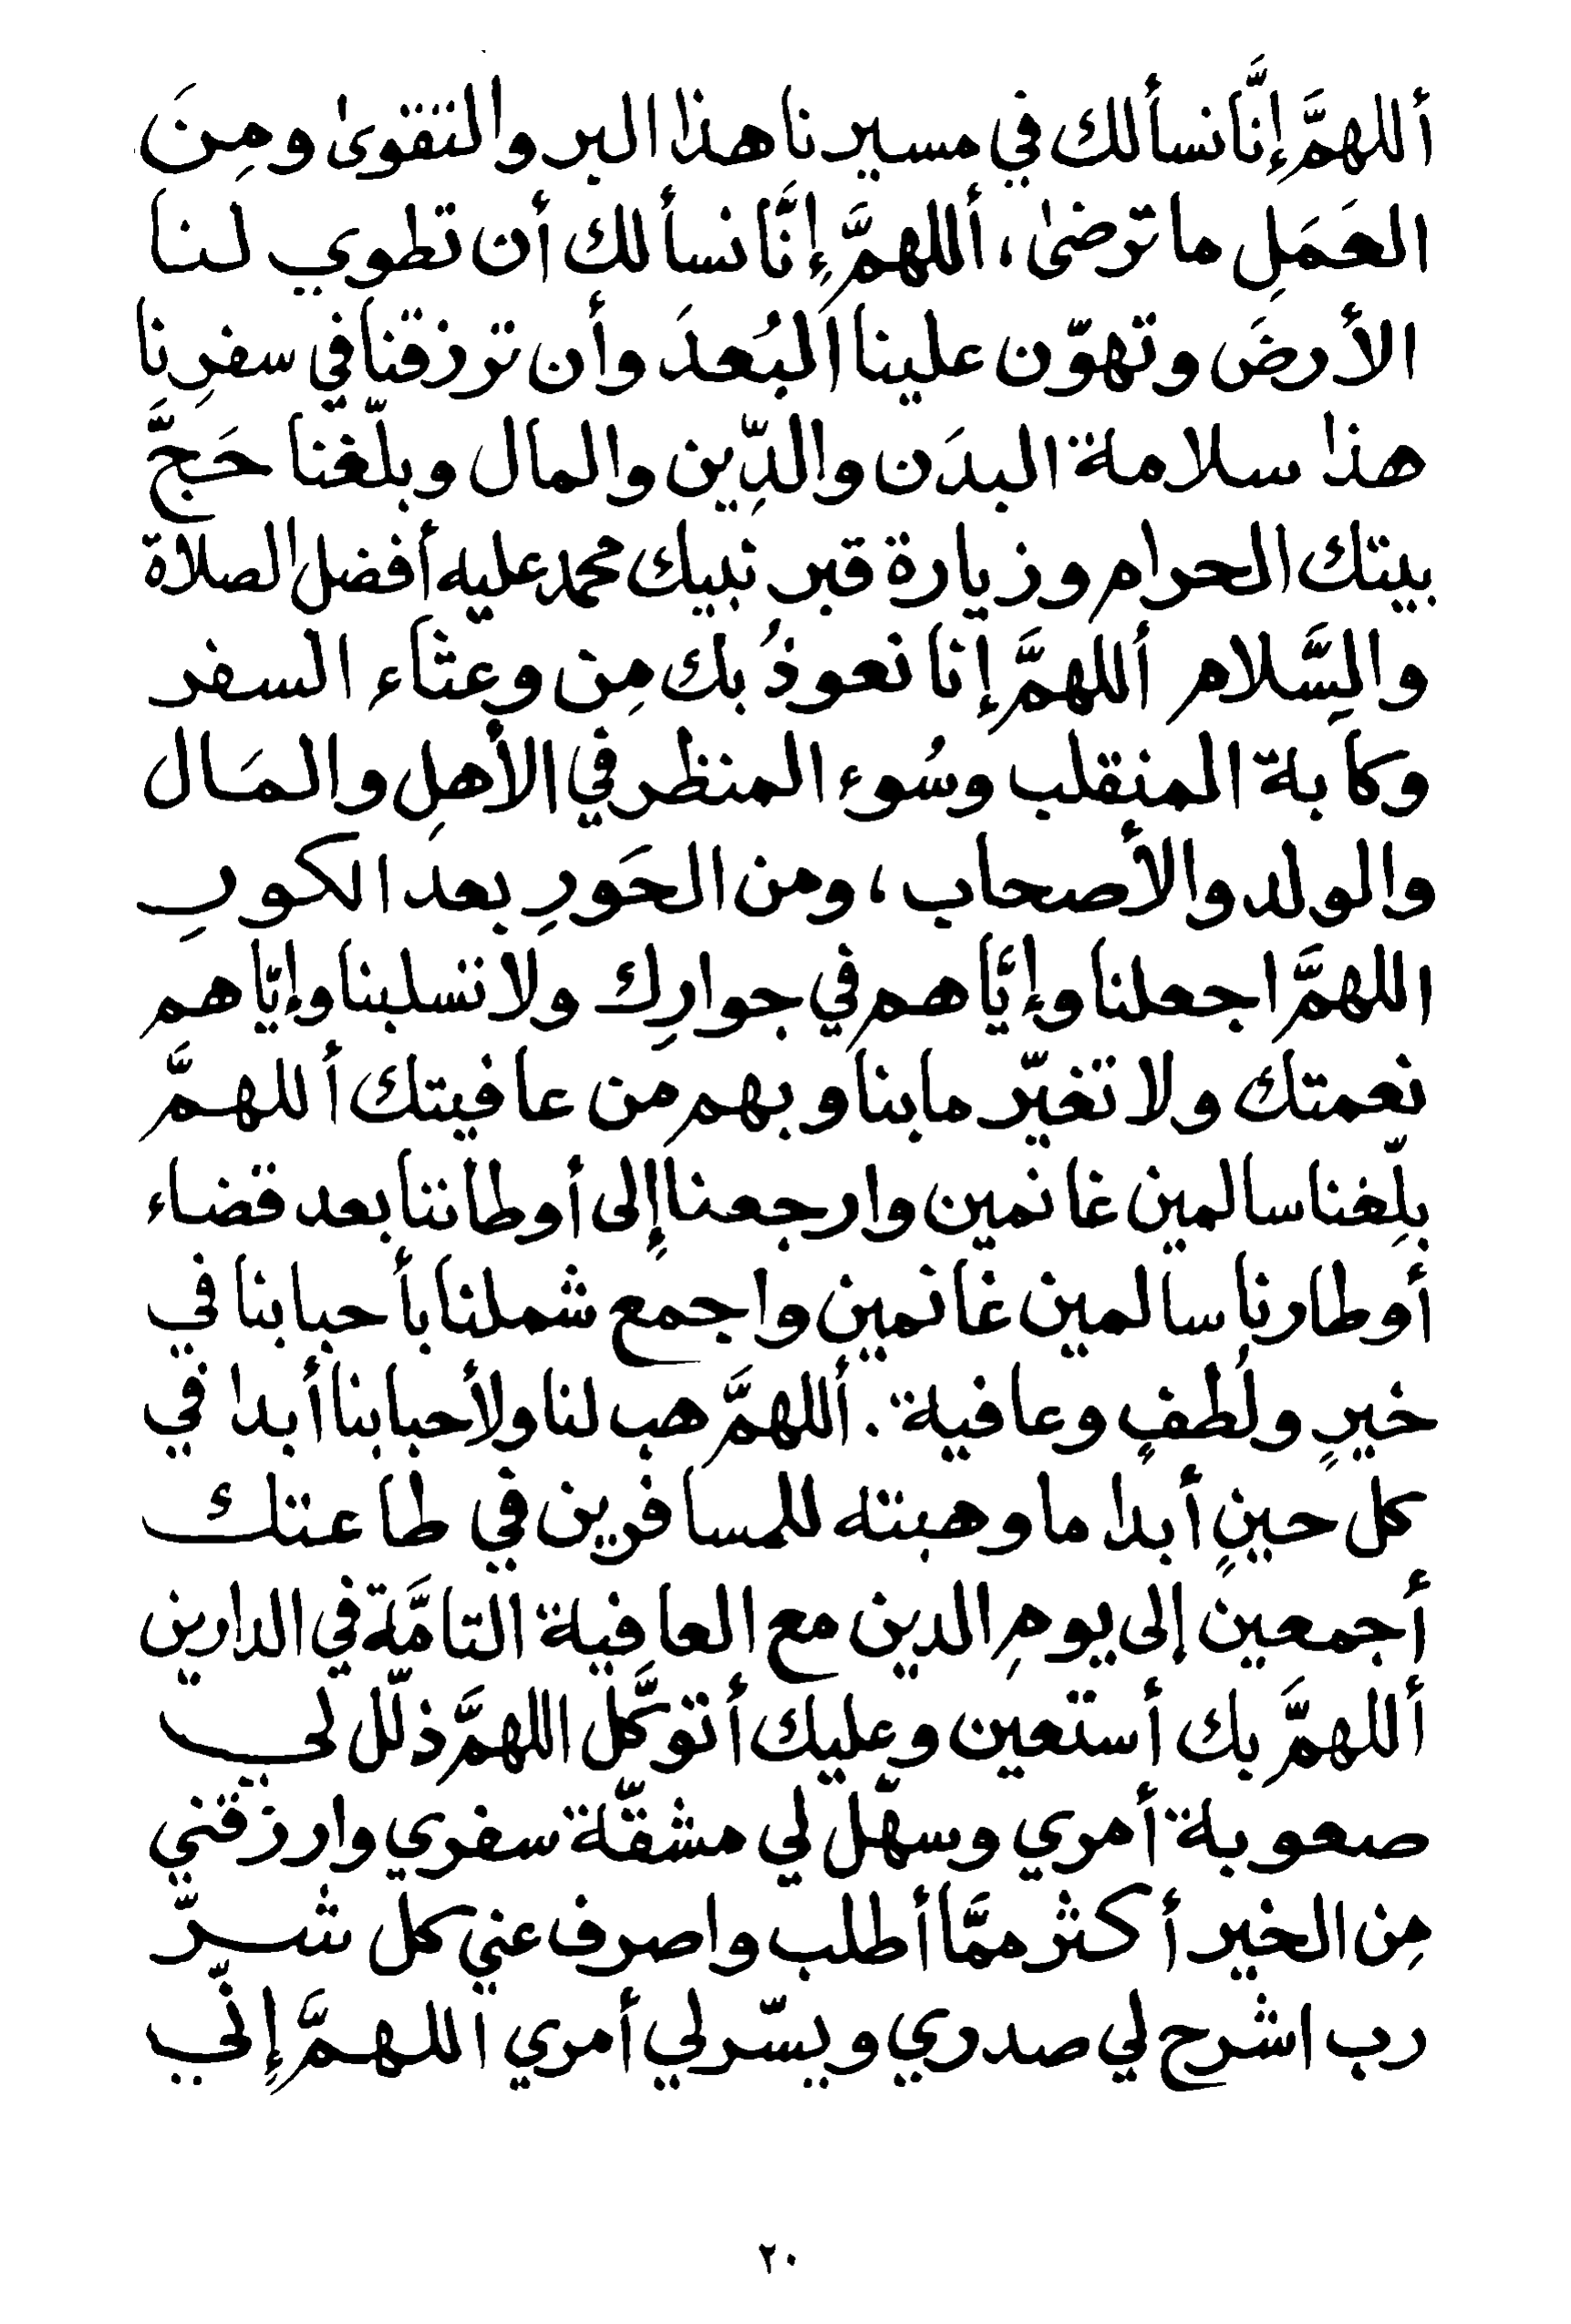 أللهمَّ إنَّا نسألك في مسيرنا هذا البر والتقوىٰ ومِنَ
العَمَلِ ما ترضىٰ، أللهمَّ إنَّا نسألك أن تطوي لنا
الأرضَ وتهوّن علينا البُعدَ وأن ترزقنا في سفرِنا
هذا سلامة البدَن والدِّين والمال وبلّغنا حَجَّ
بيتك الحرام وزيارة قبر نبيك محمد عليه أفضل الصلاة
والسَّلام أللهمَّ إنا نعوذُ بك مِن وعثاء السفر
وكابة المنقلب وسُوء المنظر في الأهلِ والمَال
والولد والأصحاب، ومن الحَورِ بعد الكورِ
اللهمَّ اجعلنا وإيَّاهم في جوارِك ولا تسلبنا وإيّاهم
نعمتك ولا تغيّر ما بنا وبهم من عافيتك أللهمَّ
بلِّغنا سالمين غانمين وارجعنا إلى أوطاننا بعد قضاء
أوطارنا سالمين غانمين واجمع شملنا بأحبابنا في
خيرٍ ولُطفٍ وعافية. أللهمَّ هب لنا ولأحبابنا أبدا في
كل حينٍ أبدا ما وهبته للمسافرين في طاعتك
أجمعين إلى يومِ الدين مع العافية التامَّة في الدارين
أللهمَّ بك أستعين وعليك أتوكَّل اللهمَّ ذلّل لي
صعوبة أمري وسهّل لي مشقّة سفري وارزقني
مِن الخير أكثر ممَّا أطلب واصرف عني كل شرّ
رب اشرح لي صدري ويسّر لي أمري اللهمَّ إنّي
٢٠